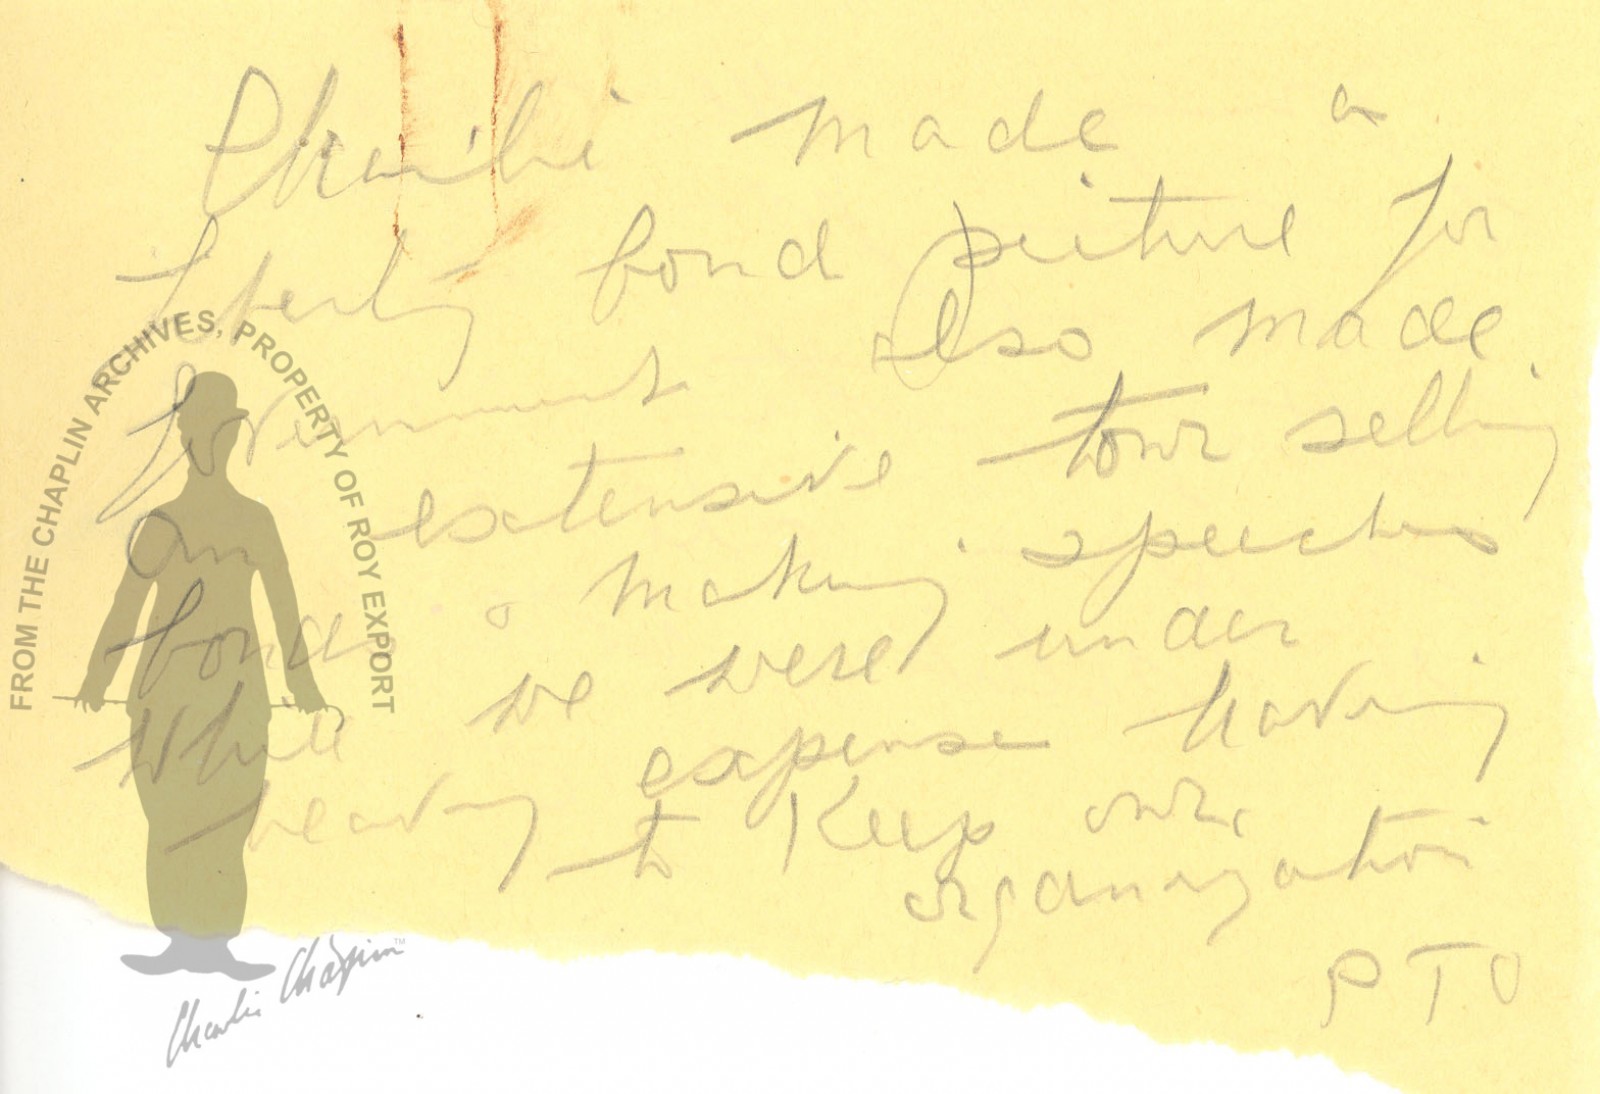 Charlie made a
Liberty bond picture for
Government also made
an extensive tour selling
bonds & making speeches
While we were under
heavy expense having
to Keep our
organization
P T O
FROM THE CHAPLIN ARCHIVES, PROPERTY OF ROY EXPORT
Charlie Chaplin™